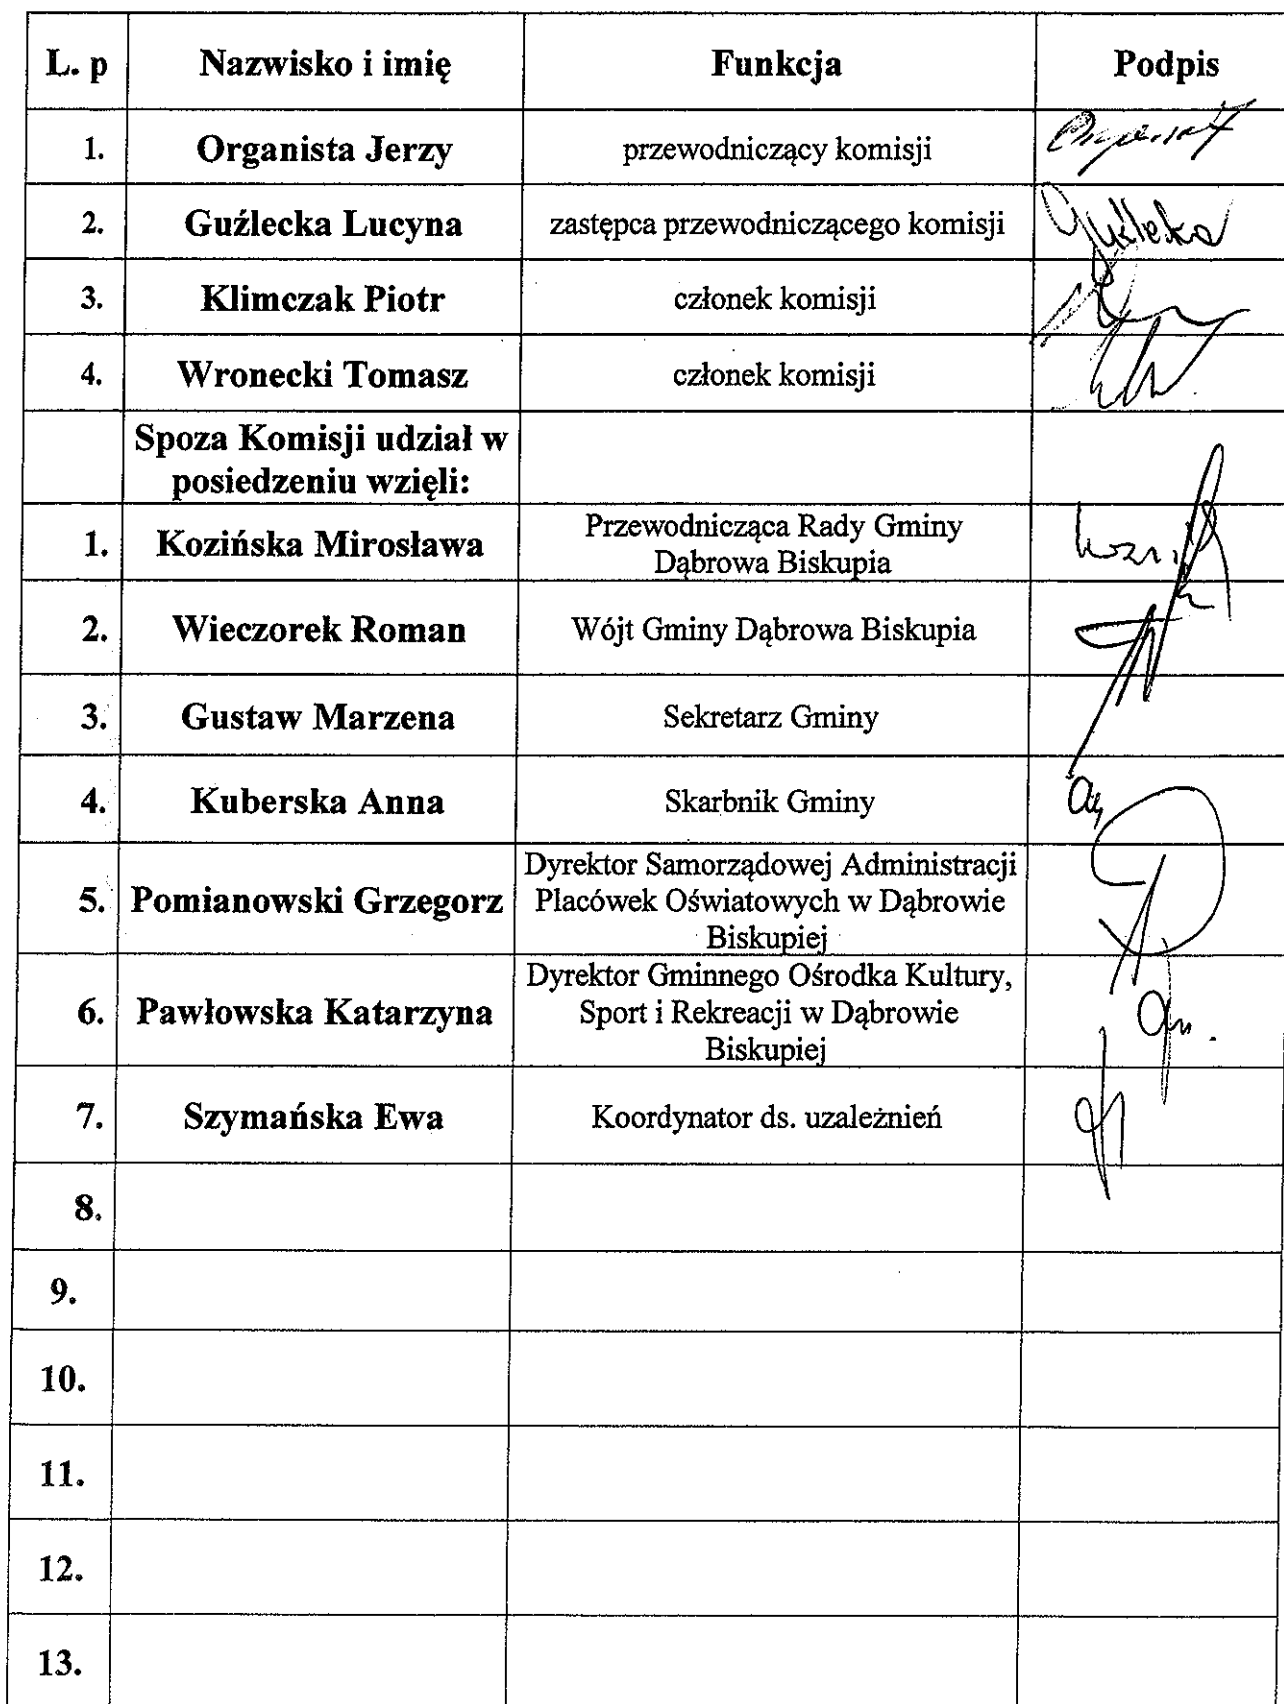 L. p Nazwisko i imię Funkcja Podpis
1. Organista Jerzy przewodniczący komisji
2. Guźlecka Lucyna zastępca przewodniczącego komisji
3. Klimczak Piotr członek komisji
4. Wronecki Tomasz członek komisji
Spoza Komisji udział w
posiedzeniu wzięli:
1. Kozińska Mirosława Przewodnicząca Rady Gminy
Dąbrowa Biskupia
2. Wieczorek Roman Wójt Gminy Dąbrowa Biskupia
3. Gustaw Marzena Sekretarz Gminy
4. Kuberska Anna Skarbnik Gminy
5. Pomianowski Grzegorz Dyrektor Samorządowej Administracji
Placówek Oświatowych w Dąbrowie
Biskupiej
6. Pawłowska Katarzyna Dyrektor Gminnego Ośrodka Kultury,
Sport i Rekreacji w Dąbrowie
Biskupiej
7. Szymańska Ewa Koordynator ds. uzależnień
8.
9.
10.
11.
12.
13.